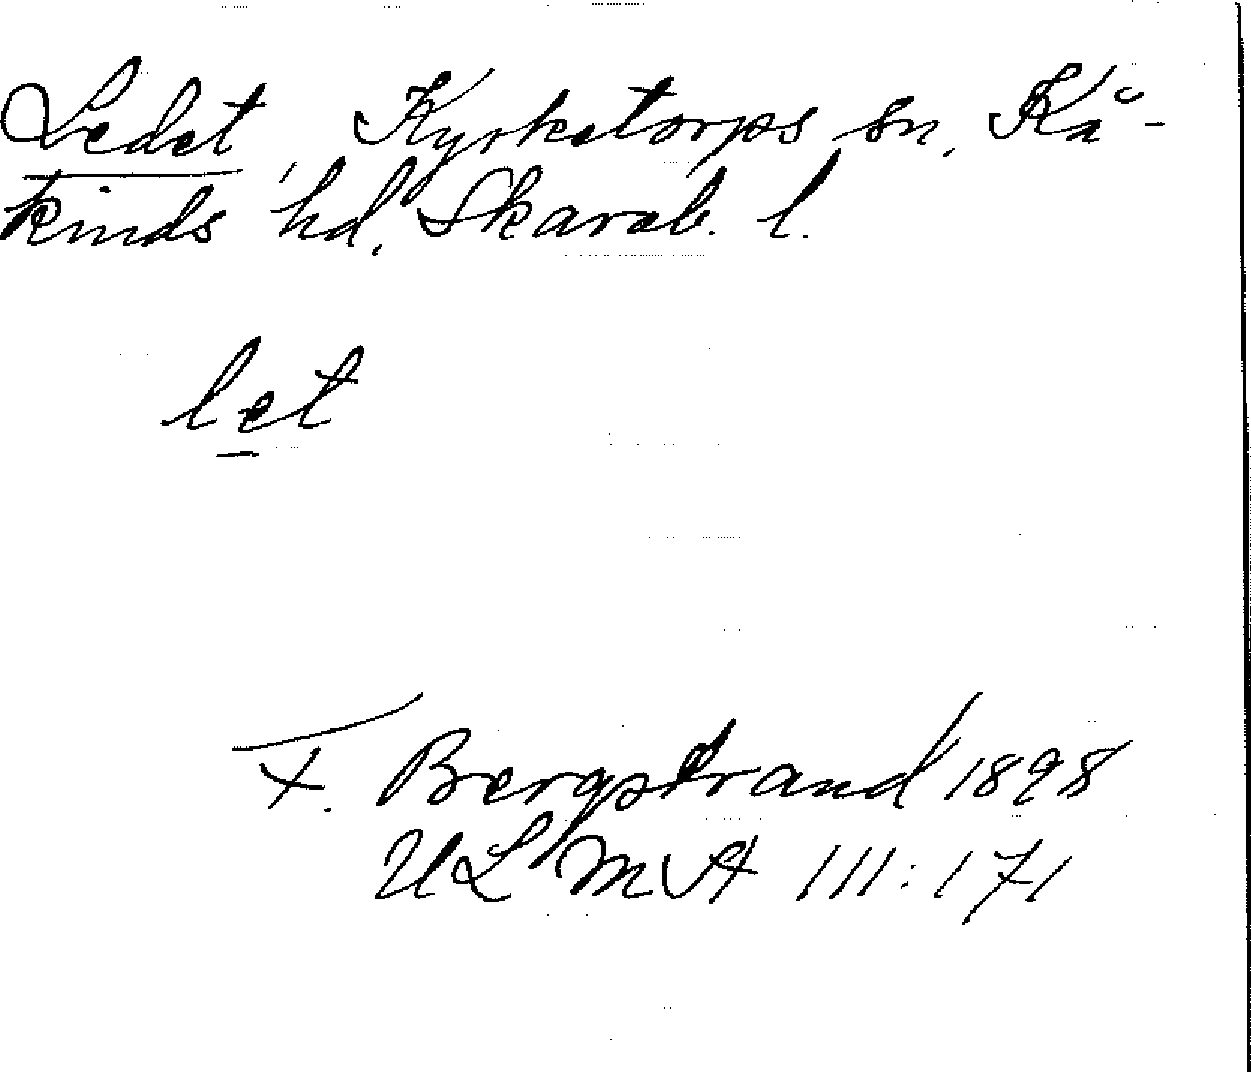 Ledet, Kyrketorps sn, Kå-
kinds hd, Skarab. l.
let
F. Bergstrand 1898
ULMA 111:171